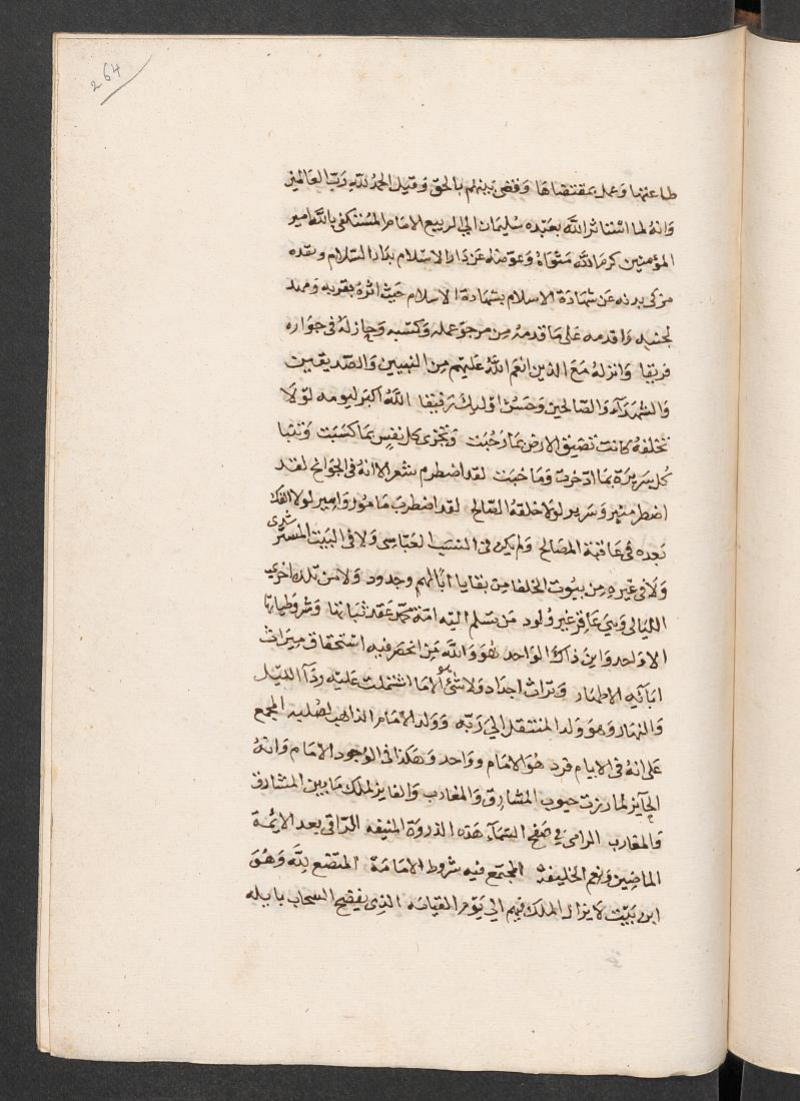 264
طاعتها وعمل بمقتضاها وقضى بينهم بالحق وقيل الحمد لله رب العالمين
وانه لما استاثر الله بعبده سليمان ابي الربيع الامام المستكفي بالله امير
المؤمنين كرم الله مثواه وعوضه عن دار الاسلام بدار السلام ونقله
مزكى بدنه عن شهادة الاسلام بشهادة الاسلام حيث اثره بقربه ومهد
لجنبه واقدمه على ما قدمه من مرجو عمله وكسبه وحاز له في جواره
فريقا وانزله مع الذين انعم الله عليهم من النبيين والصديقين
والشهدآء والصالحين وحسن اوليك رفيقا الله اكبر ليومه لولا
تخلفه كانت تضيق الارض بما رحبت وتجزى كل نفس بما كسبت وتنبا
كل سريرة بما ادخرت وما خبت لقد اضطرم سعر الا انه في الجوانح لقد
اضطر منبر وسرير لولا خلفه الصالح لقد اضطرب مامور وامير لولا الفكر
بعده في عاقبة المصالح ولم يكن في النسب العباسي ولا في البيت المسترشدى
ولا في غيره من بيوت الخلفا من بقايا ابا لهم وجدود ولا من تلد اخرى
الليالي وهي عاقر غير ولود من تسلم اليه امة محمد عقد نياتها وشروط طياتها
الا واحد واين ذاك الواحد هو والله من انحصر فيه استحقاق ميراث
ابايه الاطهار وتراث اجداده ولا شئ هو الا ما اشتملت عليه ردآ الليل
والنهار وهو ولد المنتقل الى ربه وولد الامام الذاهب لصلبه المجمع
على انه في الايام فرد هو الامام وواحد وهكذا في الوجود الامام وانه
الحآيز لما زرت جيوب المشارق والمغارب والفايز لملك ما بين المشارق
والمغارب الراقي في صفح السمآء هذه الذروة المنيفه الباقي بعد الايمة
الماضين ونعم الخليفه المجتمع فيه شروط الامامة المتضع لله وهو
ابن بيت لا يزال الملك فيهم الى يوم القيامه الذي يفضح السحاب نايله